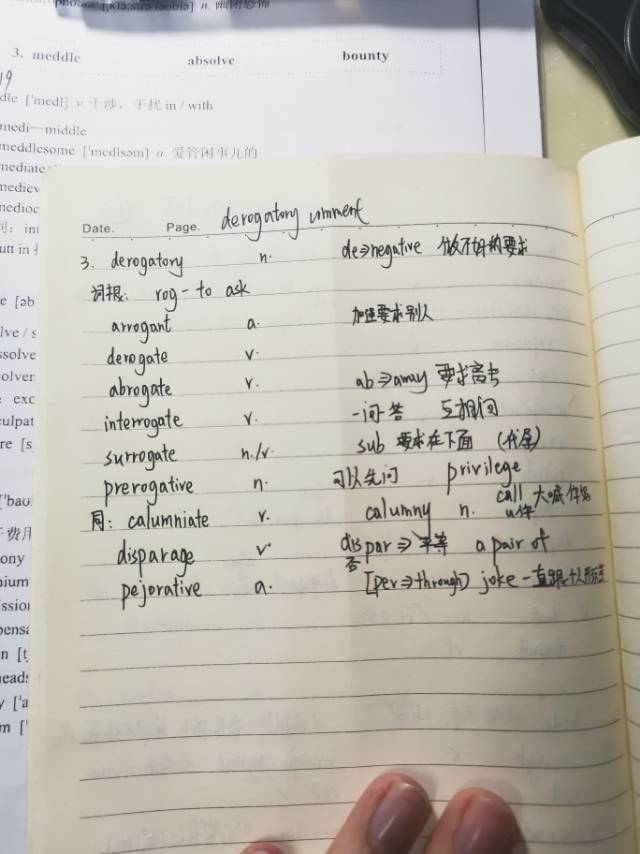 n. 幽闭恐怖
3. meddle absolve bounty
19
dle ['medl] v. 干涉，干扰 in / with
medi—middle
meddlesome ['medlsəm] a 爱管闲事儿的
mediate
mediev
medioc
utt in
Date. Page. derogatory comment
3. derogatory n. de⇒negative 做不好的要求
词根: rog - to ask
arrogant a. 加速要求别人
derogate v.
abrogate v. ab⇒away 要求离去
interrogate v. 一问一答 互相问
surrogate n./v. sub 要求在下面
prerogative n. 可以先问 privilege
同: calumniate v. calumny n. call 大喊
disparage v. dis par⇒平等 a pair of
否
pejorative a. [per⇒through] joke 一直跟
e [əb
lve / s
ssolve
solven
exc
culpat
re [s
['baʊ
费用
ony
nium
ssion
pensa
n [t
heads
y ['a
m ['